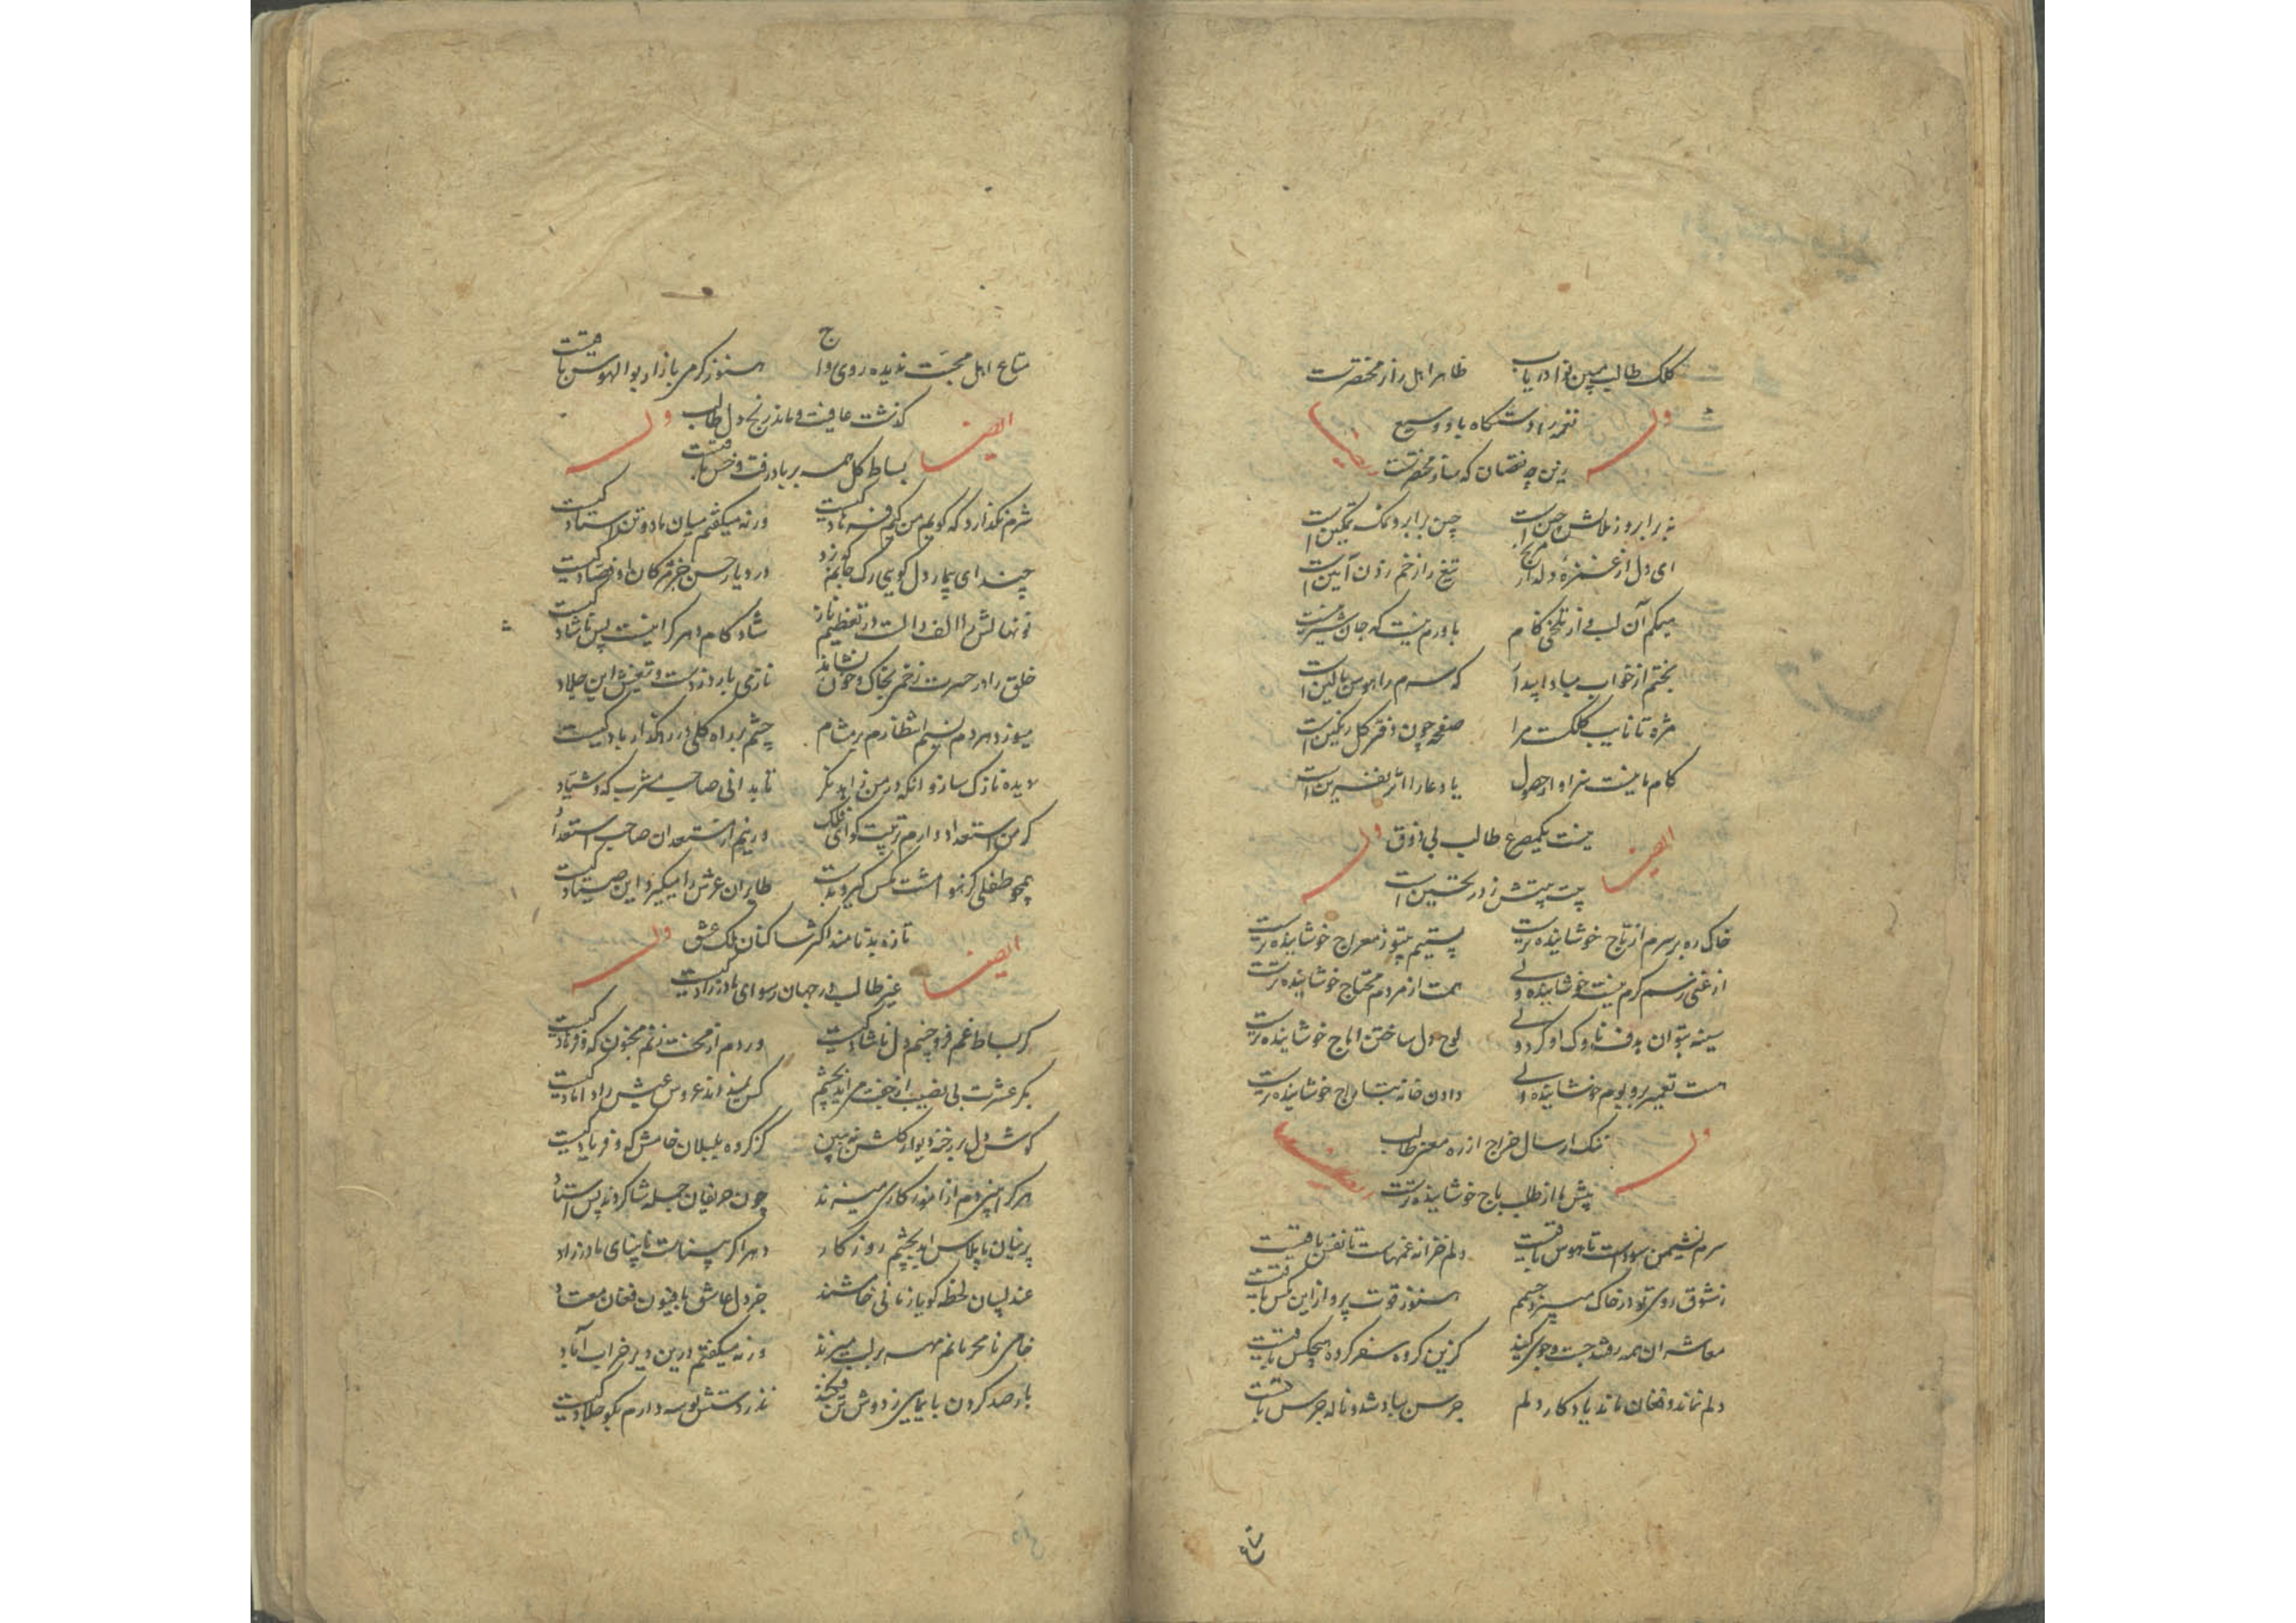 کلک طالب ببین نوا دریاب ظاهر اهل راز مختصرست
وله نغمه را دستگاه باد وسیع ایضا
زین چه نقصان که ساز مختصرست
نه بر ابرو ز ملالش چین است چین بر ابرو نمک تمکین است
ای دل از غمزه دلدار مرنج تیغ را زخم زدن آیین است
میکم آن لب و از تلخی کام باورم نیست که جان شیرینست
بختم از خواب مبادا پیدا که سرم را هوس بالین است
مژه تا نایب کلکست مرا صفحه چون دفتر گل رنگین است
کام ما نیست سزاوار حصول یا دعا را اثر نفرین است
ایضا نیست یکمصرع طالب بی ذوق وله
بیت بیتش ز در تحسین است
خاک ره بر سرم از تاج خوشاینده‌ترست پستیم بیتو ز معراج خوشاینده‌ترست
از غنی رسم کرم نیست خوشاینده ولی همت از مردم محتاج خوشاینده‌ترست
سینه بتوان هدف ناوک او کرد ولی لوح دل ساختن آماج خوشاینده‌ترست
هست تعمیر بر و بوم خوشاینده ولی دادن خانه بتاراج خوشاینده‌ترست
وله ننگ ارسال خراج از ره معنی طالب ایضا
پیش ما از طلب باج خوشاینده‌ترست
سرم نشیمن سوداست تا هوس باقیست دلم خزانه غمهاست تا نفس باقیست
ز شوق روی تو در خاک میپرد چشمم هنوز قوت پرواز این مگس باقیست
معاشران همه رفتند جست و جوی کنید کزین گروه سفر کرده هیچکس باقیست
دلم نماند و فغان ماند یادگار دلم جرس بباد شد و ناله جرس باقیست
متاع
متاع اهل محبت ندیده روی رواج هنوز گرمی بازار بوالهوس باقیست
ایضا گذشت عافیت و ماند رنج دل طالب وله
بساط گل همه بر باد رفت و خس باقیست
شرم نگذارد که گویم من کیم فرهاد کیست ورنه میگفتم میان ما دو تن استاد کیست
چند ای بیمار دل گویی رگ جانم که زد در دیار حسن جز مژگان او فصاد کیست
شاد کام دهر گر اینست پس ناشاد کیست
خلق را در حسرت زخمی بخاک و خون نشاند
میوزد هر دم نسیم انتظارم بر مشام چشم بر راه گلی در رهگذار باد کیست
گر من استعداد دارم تربیت کو ای فلک ور نیم از مستعدان صاحب استعداد
همچو طفلی کز هوا مشت مگس گیرد بدست طایران عرش را میگیرد این صیاد کیست
ایضا تازه بدنامند اکثر ساکنان ملک عشق وله
غیر طالب در جهان رسوای مادرزاد کیست
گر بساط غم فرو چینم دل ناشاد کیست ور دم از محنت زنم مجنون که و فرهاد کیست
بکر عشرت بی نصیب از جفت می‌آید بچشم کس نمیداند عروس عیش را داماد کیست
گوش دل بر رخنه دیوار گلشن نه ببین کز گروه بلبلان خامش که و فریاد کیست
چون حریفان جمله شاگردند پس استاد
پرنیان با پلاس آید بچشم روزگار دهر اگر بیناست نابینای مادرزاد
عندلیبان لحظه گویا زمانی خامشند جز دل عاشق بافیون فغان معتاد
خامی نامحرمانم مهر بر لب میزند ورنه میگفتم درین دیر خراب آباد
بار صد گردن بایمایی ز دوش تن فکند نذر دستش بوسه دارم بگو جلاد کیست